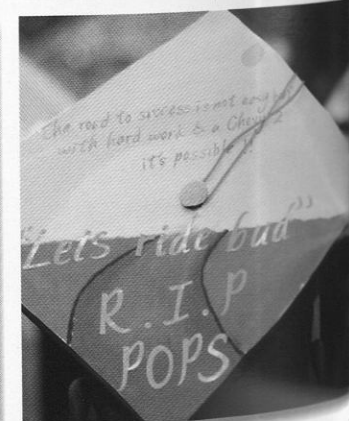 The road to success is not easy but
with hard work & a Chevy 2
it's possible!!
"Let's ride bud"
R.I.P
POPS